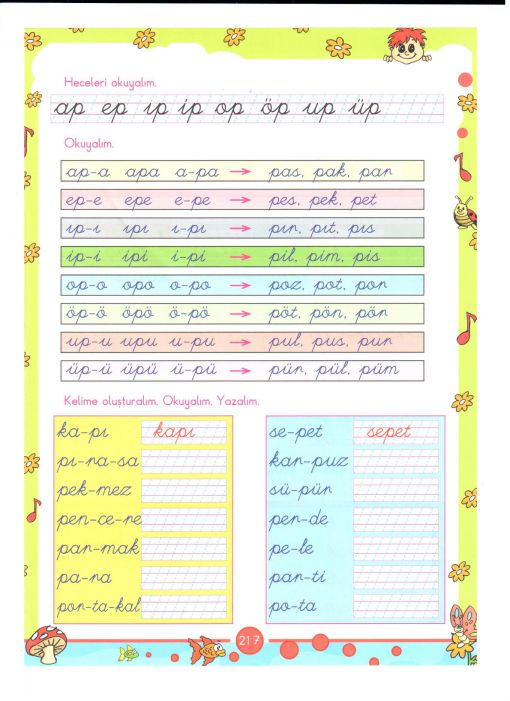 Heceleri okuyalım.
ap ep ıp ip op öp up üp
Okuyalım.
ap-a apa a-pa → pas, pak, par
ep-e epe e-pe → pes, pek, pet
ıp-ı ıpı ı-pı → pır, pıt, pıs
ip-i ipi i-pi → pil, pim, pis
op-o opo o-po → poz, pot, por
öp-ö öpö ö-pö → pöt, pön, pör
up-u upu u-pu → pul, pus, pur
üp-ü üpü ü-pü → pür, pül, püm
Kelime oluşturalım. Okuyalım. Yazalım.
ka-pı kapı
pı-ra-sa
pek-mez
pen-ce-re
par-mak
pa-ra
por-ta-kal
se-pet sepet
kar-puz
sü-pür
per-de
pe-le
par-ti
po-ta
217